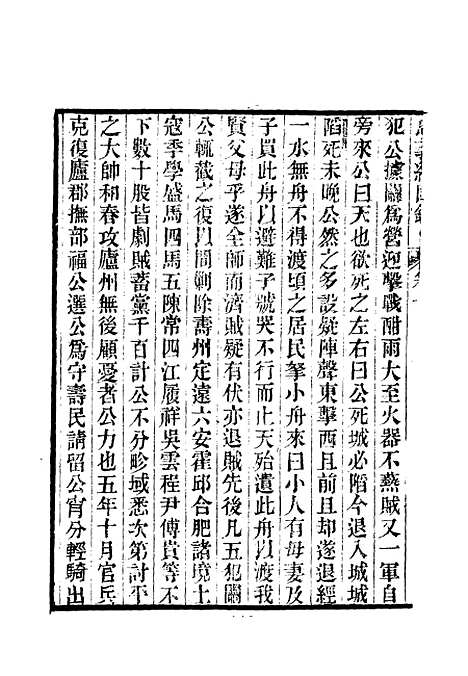 犯公據關爲營迎擊戰酣雨大至火器不爇賊又一軍自
旁來公曰天也欲死之左右曰公死城必陷今退入城城
陷死未晚公然之多設疑陣聲東擊西且前且却遂退經
一水無舟不得渡頃之居民拏小舟來曰小人有母妻及
子買此舟以避難子號哭不行而止天殆遺此舟以渡我
賢父母乎遂全師而濟賊疑有伏亦退賊先後凡五犯關
公輒截之復以間剿除壽州定遠六安霍邱合肥諸境土
寇季學盛馬四馬五陳常四江履祥吳雲程尹傅貴等不
下數十股皆劇賊蓄黨千百計公不分畛域悉次第討平
之大帥和春攻廬州無後顧憂者公力也五年十月官兵
克復廬郡撫部福公選公爲守壽民請留公宵分輕騎出